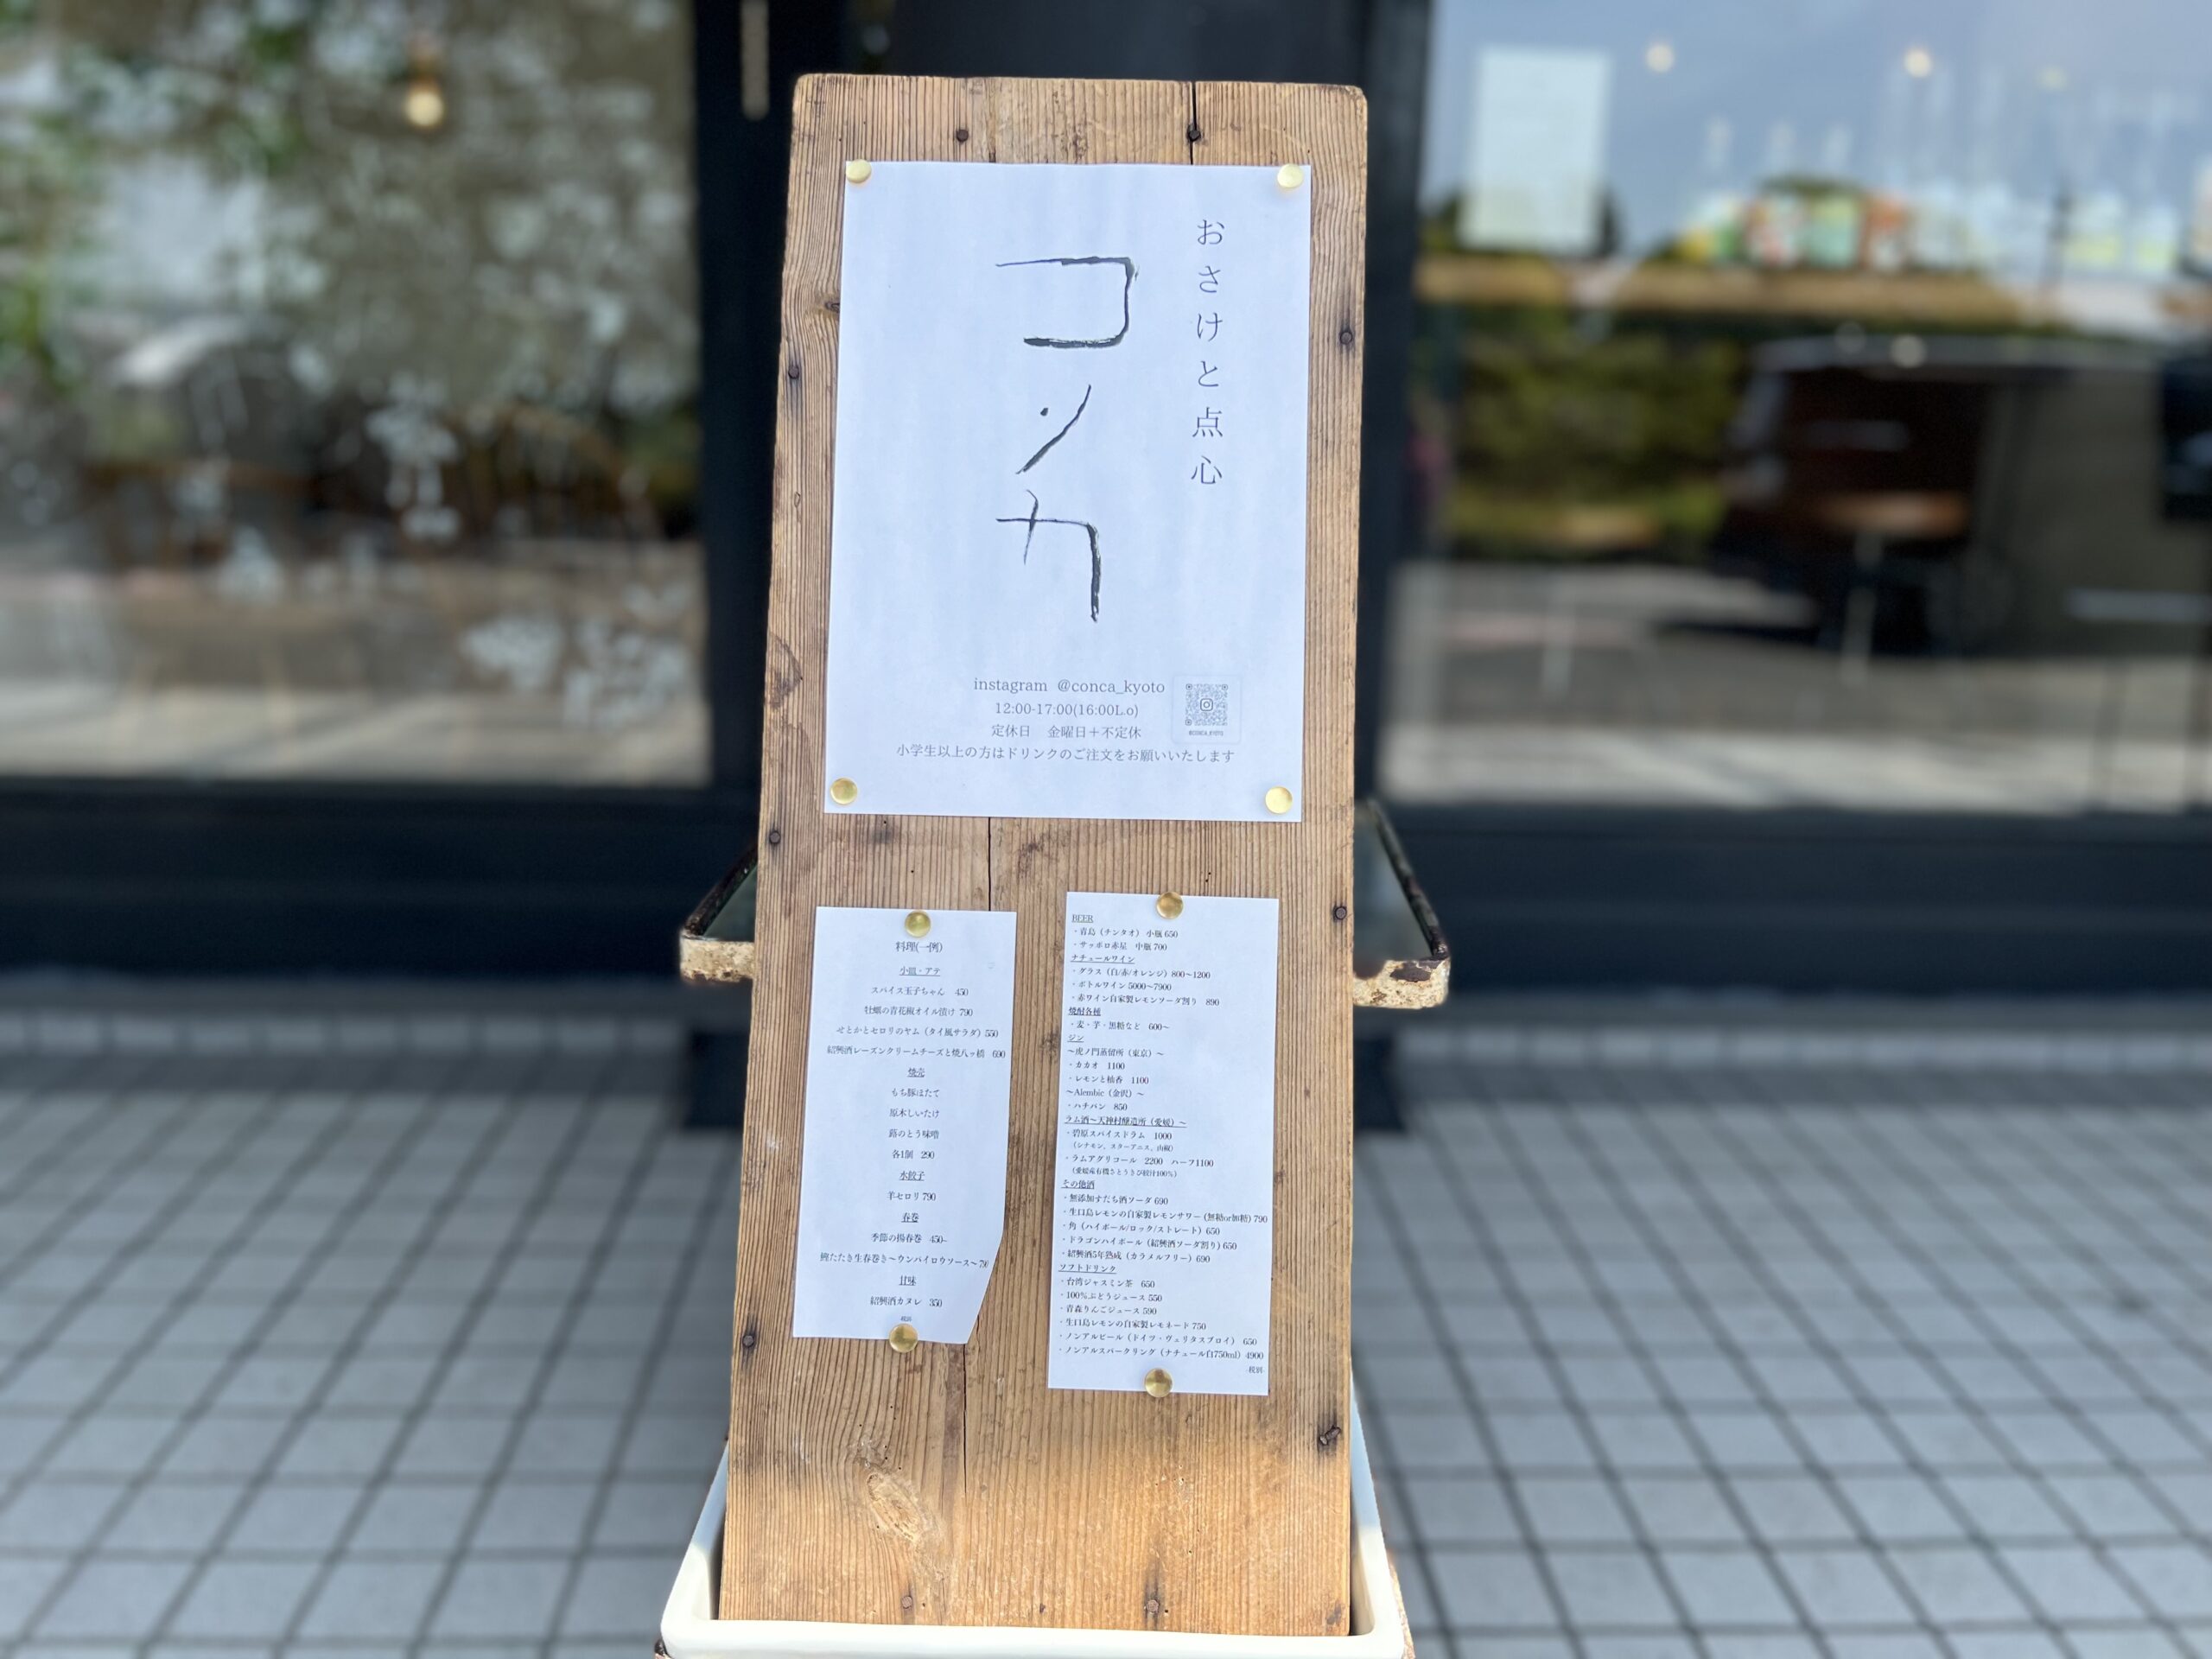 おさけと点心
コンカ
instagram @conca_kyoto
12:00-17:00(16:00L.o)
定休日　金曜日＋不定休
小学生以上の方はドリンクのご注文をお願いいたします
@CONCA_KYOTO
料理(一例)
小皿・アテ
スパイス玉子ちゃん　450
牡蠣の青花椒オイル漬け 790
せとかとセロリのヤム（タイ風サラダ）550
紹興酒レーズンクリームチーズと焼八ッ橋　690
焼売
もち豚ほたて
原木しいたけ
蕗のとう味噌
各1個　290
水餃子
羊セロリ 790
春巻
季節の揚春巻　450~
たたき生春巻き〜ウンパイロウソース〜
甘味
紹興酒カヌレ　350
BEER
・青島（チンタオ） 小瓶 650
・サッポロ赤星　中瓶 700
ナチュールワイン
・グラス（白/赤/オレンジ）800〜1200
・ボトルワイン 5000〜7900
・赤ワイン自家製レモンソーダ割り　890
焼酎各種
・麦・芋・黒糖など　600〜
ジン
〜虎ノ門蒸留所（東京）〜
・カカオ　1100
・レモンと柚香　1100
〜Alembic（金沢）〜
・ハチバン　850
ラム酒〜天神村醸造所（愛媛）〜
・碧原スパイスドラム　1000
（シナモン、スターアニス、山椒）
・ラムアグリコール　2200　ハーフ1100
（愛媛産有機さとうきび絞汁100%）
その他酒
・無添加すだち酒ソーダ 690
・生口島レモンの自家製レモンサワー (無糖or加糖) 790
・角（ハイボール/ロック/ストレート）650
・ドラゴンハイボール（紹興酒ソーダ割り) 650
・紹興酒5年熟成（カラメルフリー）690
ソフトドリンク
・台湾ジャスミン茶　650
・100%ぶどうジュース 550
・青森りんごジュース 590
・生口島レモンの自家製レモネード 750
・ノンアルビール（ドイツ・ヴェリタスブロイ）　650
・ノンアルスパークリング（ナチュール白750ml）4900
-税別-